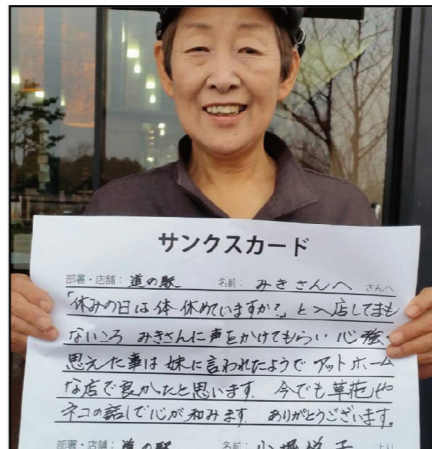 サンクスカード
部署・店舗: 道の駅 名前: みきさんへ さんへ
「休みの日は体休めていますか?」と入店してまも
ないころ みきさんに声をかけてもらい心強く
思えた事は妹に言われたようでアットホーム
な店で良かったと思います 今でも草花や
ネコの話しで心が和みます ありがとうございます。
部署・店舗: 道の駅 名前: 小堀悦子 より